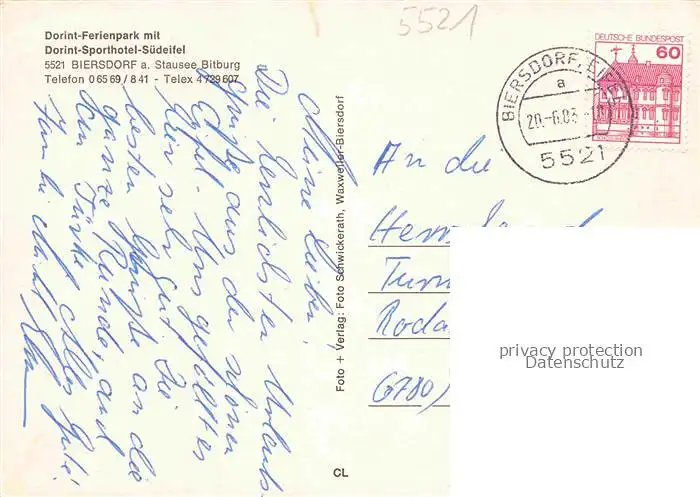 Dorint-Ferienpark mit
Dorint-Sporthotel-Südeifel
5521 BIERSDORF a. Stausee Bitburg
Telefon 0 65 69 / 8 41 - Telex 4 729 607
5521
DEUTSCHE BUNDESPOST
60
BIERSDORF, EIFEL
a
20.-6.83
5521
Meine Lieben!
Die herzlichsten Urlaubs-
grüße aus der schönen
Eifel. Uns gefällt es
hier sehr gut. Die
besten Grüße an die
ganze Runde, auch
Alles Gute!
Foto + Verlag: Foto Schwickerath, Waxweiler-Biersdorf
CL
An die
Turn
Roda
6780
privacy protection
Datenschutz